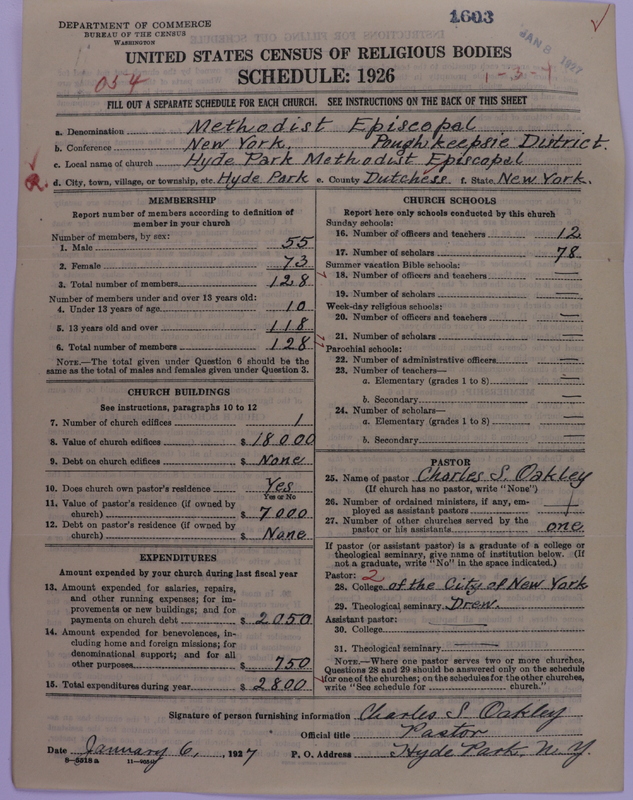 DEPARTMENT OF COMMERCE
BUREAU OF THE CENSUS
WASHINGTON
1603
JAN 8 1927
UNITED STATES CENSUS OF RELIGIOUS BODIES
SCHEDULE: 1926
054
1-3-1
FILL OUT A SEPARATE SCHEDULE FOR EACH CHURCH. SEE INSTRUCTIONS ON THE BACK OF THIS SHEET
a. Denomination Methodist Episcopal
b. Conference New York. Poughkeepsie District.
c. Local name of church Hyde Park Methodist Episcopal
d. City, town, village, or township, etc. Hyde Park e. County Dutchess f. State New York.
MEMBERSHIP
Report number of members according to definition of
member in your church
Number of members, by sex:
1. Male 55
2. Female 73
3. Total number of members 128
Number of members under and over 13 years old:
4. Under 13 years of age 10
5. 13 years old and over 118
6. Total number of members 128
NOTE.—The total given under Question 6 should be the
same as the total of males and females given under Question 3.
CHURCH BUILDINGS
See instructions, paragraphs 10 to 12
7. Number of church edifices 1
8. Value of church edifices $ 18000
9. Debt on church edifices $ None
10. Does church own pastor's residence Yes
Yes or No
11. Value of pastor's residence (if owned by
church) $ 7000
12. Debt on pastor's residence (if owned by
church) $ None
EXPENDITURES
Amount expended by your church during last fiscal year
13. Amount expended for salaries, repairs,
and other running expenses; for im-
provements or new buildings; and for
payments on church debt $ 2050
14. Amount expended for benevolences, in-
cluding home and foreign missions; for
denominational support; and for all
other purposes $ 750
15. Total expenditures during year $ 2800
CHURCH SCHOOLS
Report here only schools conducted by this church
Sunday schools:
16. Number of officers and teachers 12
17. Number of scholars 78
Summer vacation Bible schools:
18. Number of officers and teachers —
19. Number of scholars —
Week-day religious schools:
20. Number of officers and teachers —
21. Number of scholars —
Parochial schools:
22. Number of administrative officers —
23. Number of teachers—
a. Elementary (grades 1 to 8) —
b. Secondary —
24. Number of scholars—
a. Elementary (grades 1 to 8) —
b. Secondary —
PASTOR
25. Name of pastor Charles S. Oakley
(If church has no pastor, write "None")
26. Number of ordained ministers, if any, em-
ployed as assistant pastors
27. Number of other churches served by the
pastor or his assistants one
If pastor (or assistant pastor) is a graduate of a college or
theological seminary, give name of institution below. (If
not a graduate, write "No" in the space indicated.)
Pastor: 2
28. College of the City of New York
29. Theological seminary Drew.
Assistant pastor:
30. College —
31. Theological seminary —
NOTE.—Where one pastor serves two or more churches,
Questions 28 and 29 should be answered only on the schedule
for one of the churches; on the schedules for the other churches,
write "See schedule for church."
Signature of person furnishing information Charles S. Oakley
Official title Pastor
Date January 6, 1927 P. O. Address Hyde Park, N. Y.
8-5518a